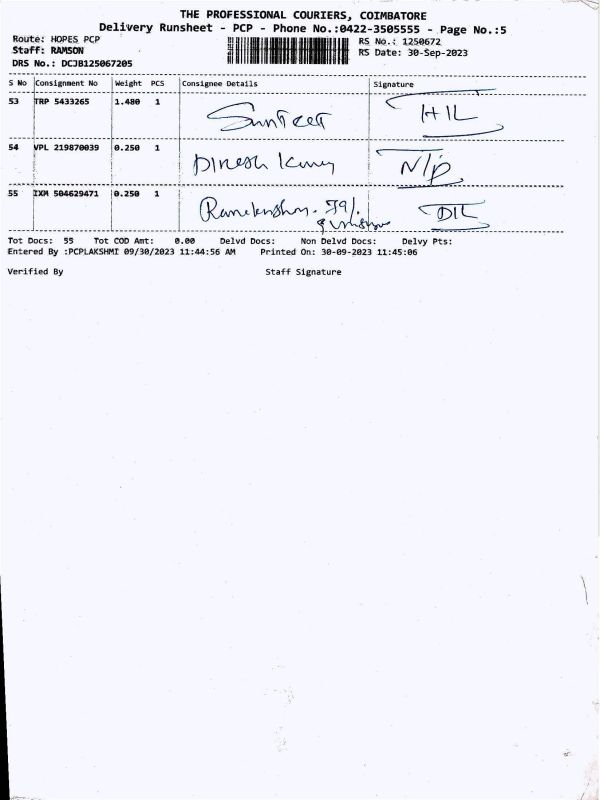 THE PROFESSIONAL COURIERS, COIMBATORE
Delivery Runsheet - PCP - Phone No.:0422-3505555 - Page No.:5
Route: HOPES PCP RS No.: 1250672
Staff: RAMSON RS Date: 30-Sep-2023
DRS No.: DCJB125067205
S No Consignment No Weight PCS Consignee Details Signature
53 TRP 5433265 1.480 1 HIL
54 VPL 219870039 0.250 1 Dinesh N/P
55 IXM 504629471 0.250 1
Tot Docs: 55 Tot COD Amt: 0.00 Delvd Docs: Non Delvd Docs: Delvy Pts:
Entered By :PCPLAKSHMI 09/30/2023 11:44:56 AM Printed On: 30-09-2023 11:45:06
Verified By Staff Signature